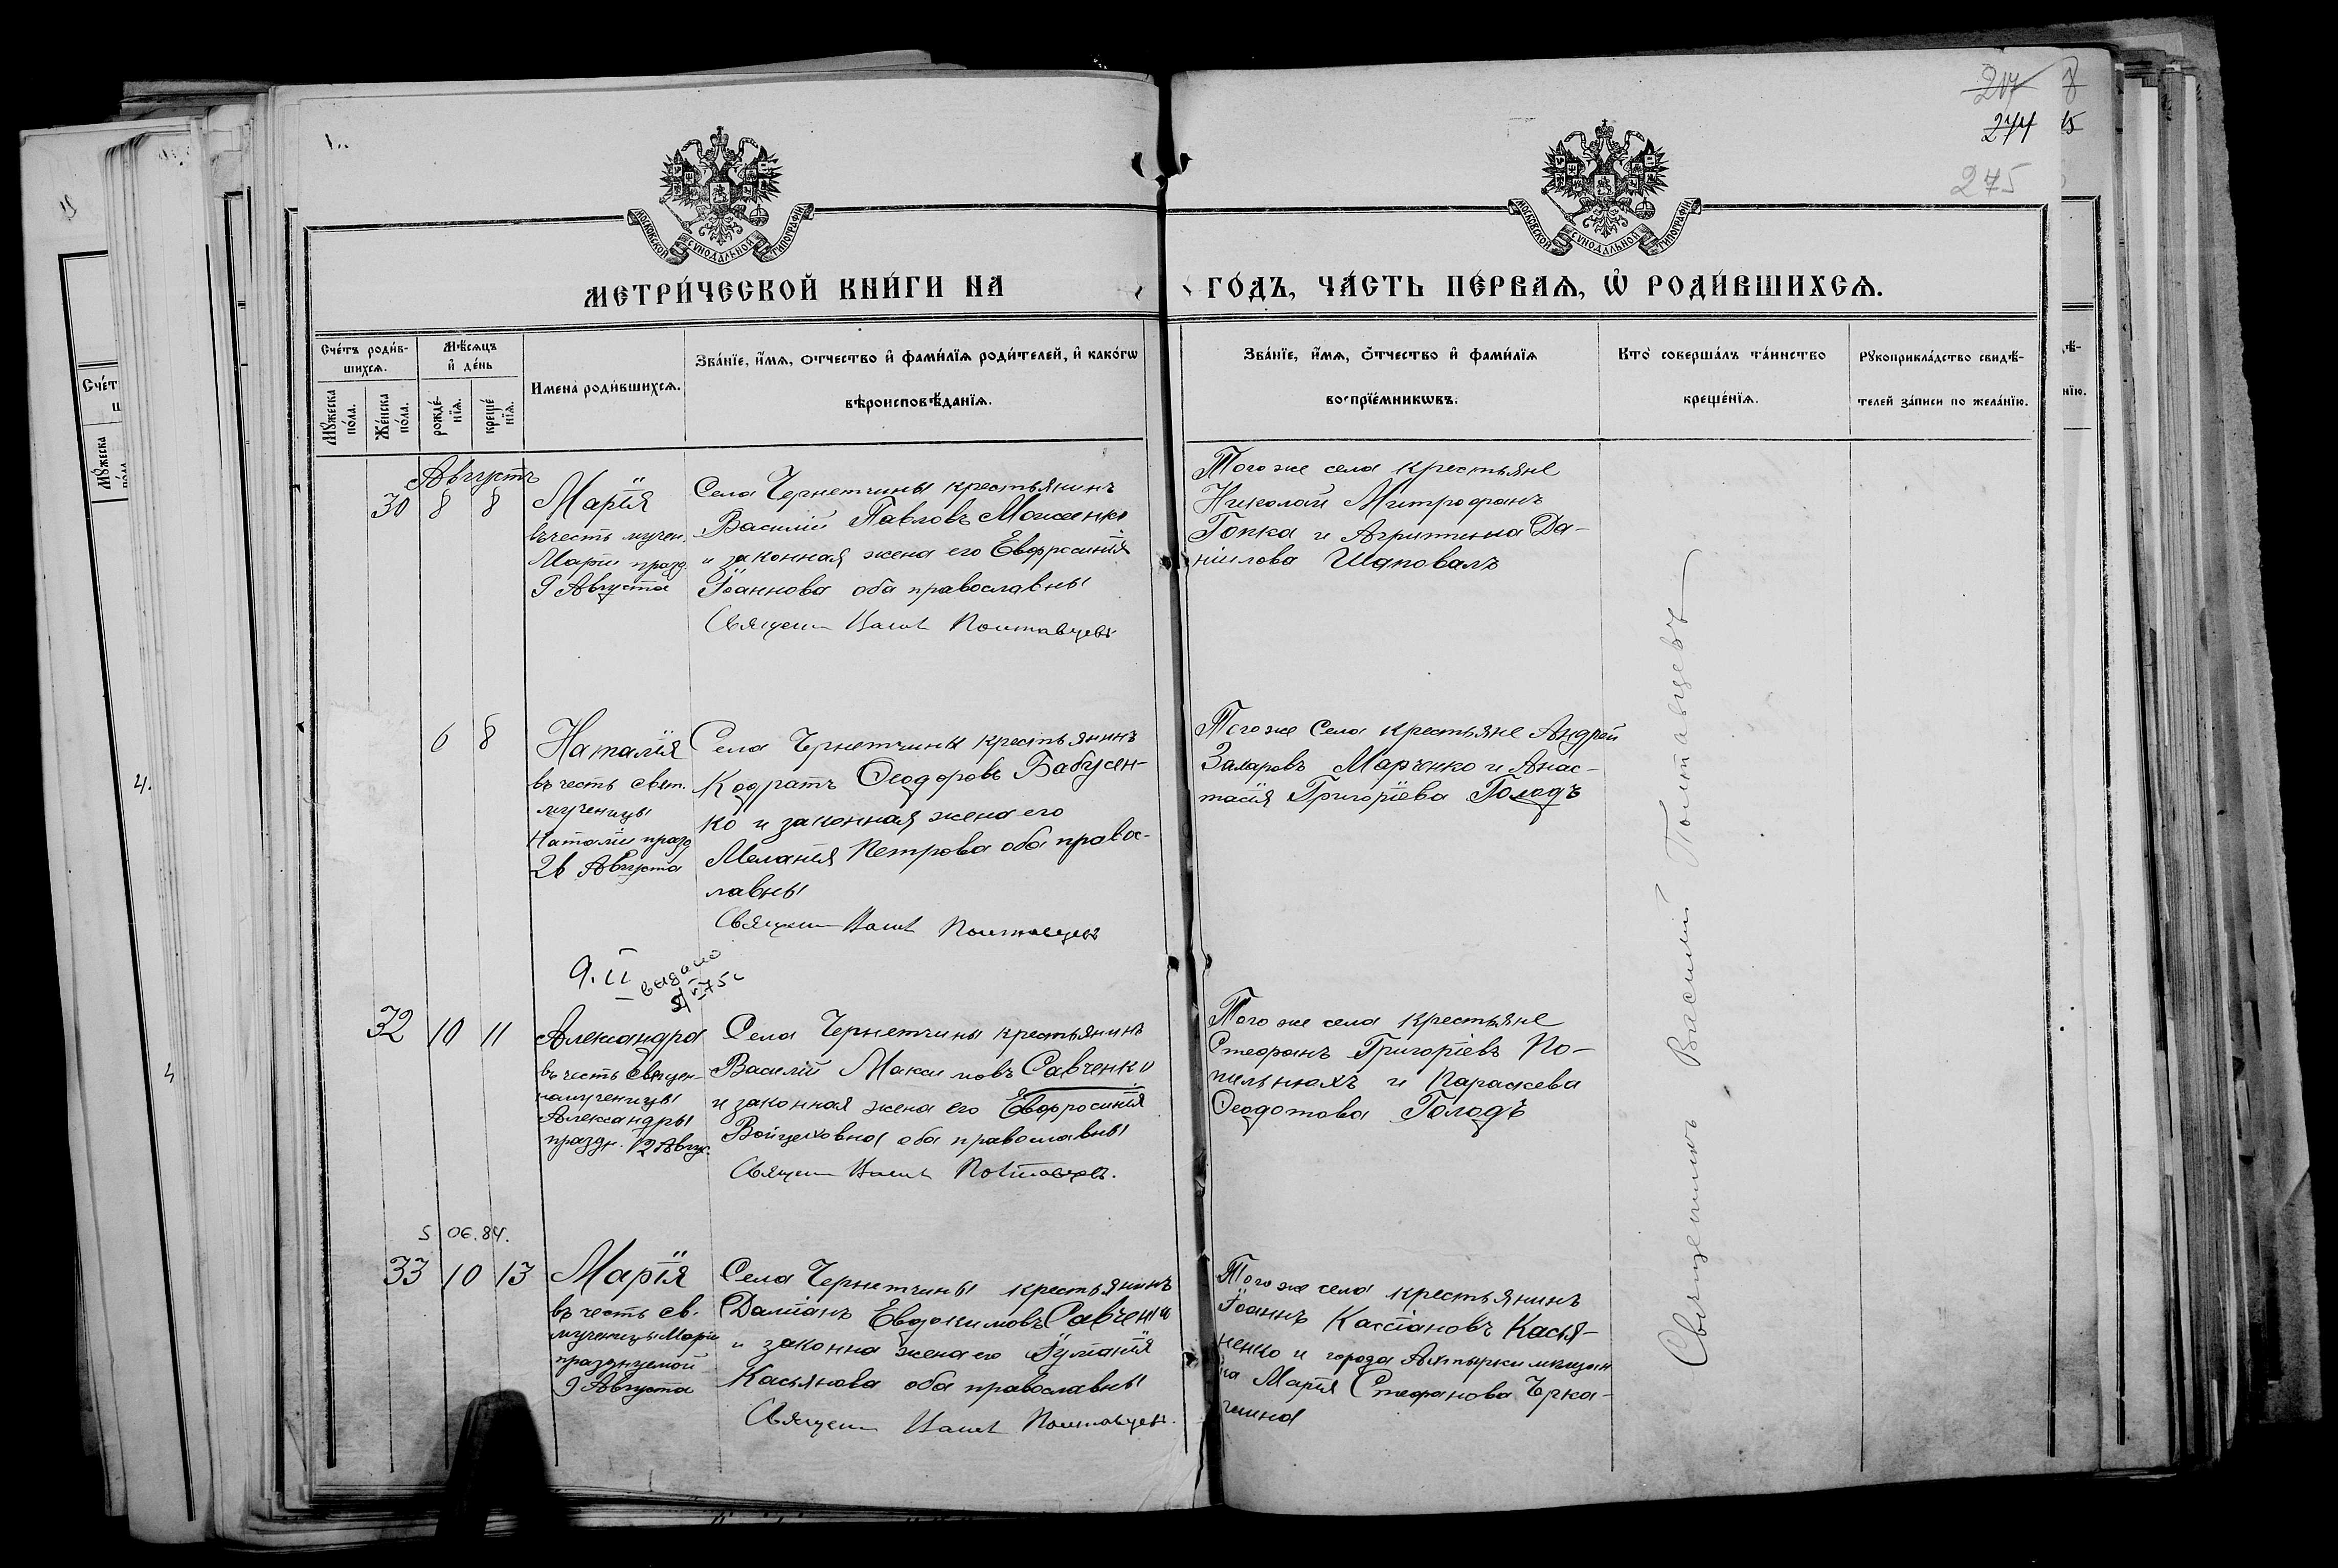 217
274
275
МОСКОВСКОЙ СѴНОДАЛЬНОЙ ТИПОГРАФІИ
МОСКОВСКОЙ СѴНОДАЛЬНОЙ ТИПОГРАФІИ
МЕТРИ́ЧЕСКОЙ КНИ́ГИ НА ГО́ДЪ, ЧА́СТЬ ПЕ́РВАѦ, Ѡ҆ РОДИ́ВШИХСѦ.
Сче́тъ роди́в-
шихсѧ.
Мꙋ́жеска по́ла.
Же́нска по́ла.
Мѣ́сѧцъ и҆ де́нь
рожде́-нїѧ.
креще́нїѧ.
Имена̀ роди́вшихсѧ.
Зва́нїе, и҆́мѧ, о́тчество и҆ фами́лїѧ роди́телей, и҆ како́гѡ
вѣроисповѣ́данїѧ.
Зва́нїе, и҆́мѧ, о́тчество и҆ фами́лїѧ
воспрїе́мникѡвъ.
Кто̀ соверша́лъ та́инство
креще́нїѧ.
Рꙋкоприкла́дство свидѣ́-
телей за́писи по жела́нїю.
Августъ
30 8 8
Марія
въ честь мучен.
Маріи празд
9 Августа
Села Чернетчины крестьянинъ
Василій Павловъ
и законная жена его Евфросинія
Іоаннова оба православны
Священ Васил Полтавцевъ
Того же села крестьяне
Николай Митрофанъ
Гопка и Агрипина Да-
ніилова Шаповалъ
6 8
Наталія
въ честь свят.
мученицы
Наталіи празд
26 Августа
Села Чернетчины крестьянинъ
Кодратъ Ѳеодоровъ Бабусен-
ко и законная жена его
Меланія Петрова оба правос-
лавны
Священ Васил Полтавцевъ
Того же Села крестьяне Андрей
Захаровъ Марченко и Анас-
тасія Григоріева Голодъ
9. II
выдано
75
32 10 11
Александра
въ честь священ-
номученицы
Александры
праздн. 12 Авгус.
Села Чернетчины крестьянинъ
Василій Макси мовъ Савченко
и законная жена его Евфросинія
оба православны
Священ Васил Полтавцевъ.
Того же села крестьяне
Стефанъ Григоріевъ По-
пильнюхъ и Параскева
Ѳеодотова Голодъ
5 06.84.
33 10 13
Марія
въ честь св.
мученицы Маріи
празднуемой
9 Августа
Села Чернетчины крестьянинъ
Даміанъ Евдокимовъ Савченко
и законна жена его Іуліанія
Касьянова оба православны
Священ Васил Полтавцевъ.
Того же села крестьянинъ
Іоаннъ Кассіановъ Касья-
ненко и города Ахтырки мещан
ка Марія Стефанова
Священникъ Василій Полтавцевъ